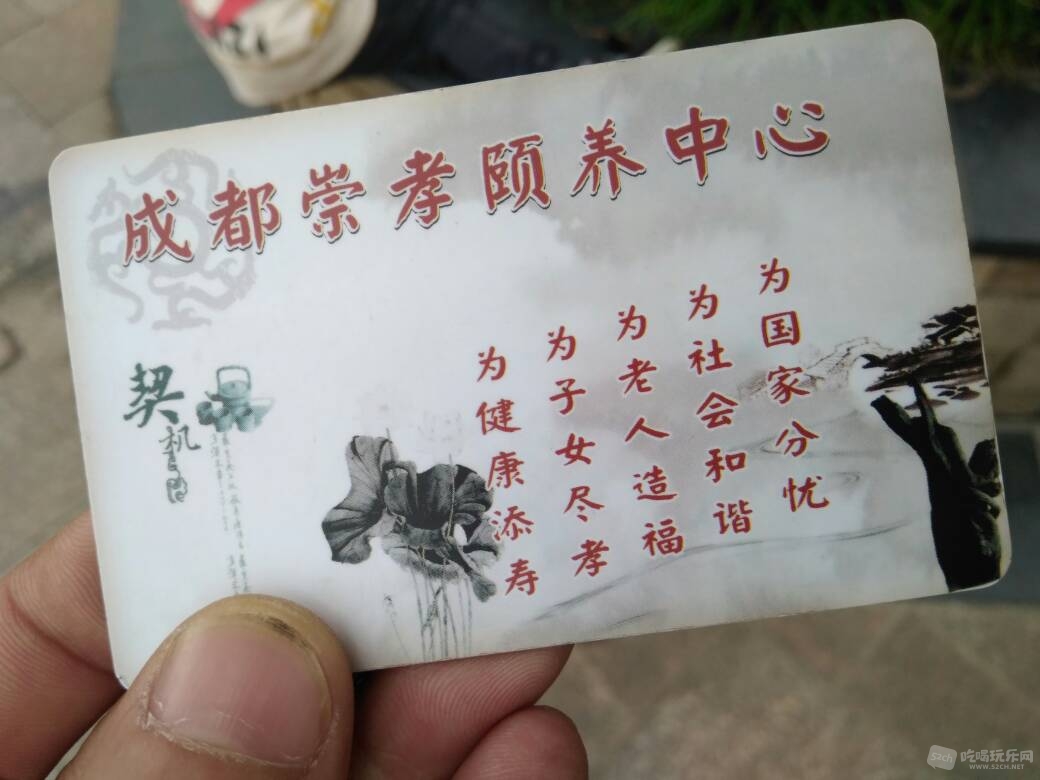 成都崇孝颐养中心
为国家分忧
为社会和谐
为老人造福
为子女尽孝
为健康添寿
契机
吃喝玩乐网
WWW.52CH.NET
52ch